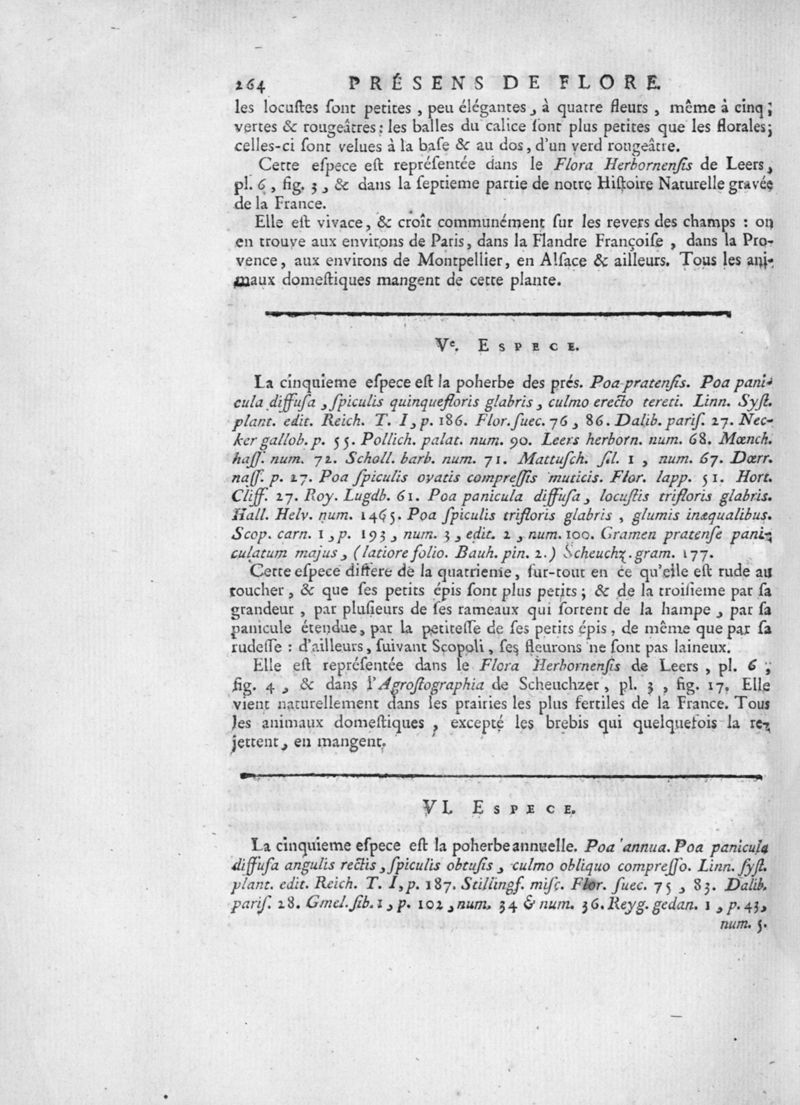 264 PRÉSENS DE FLORE
les locuſtes ſont petites, peu élégantes, à quatre fleurs, même à cinq;
vertes & rougeâtres: les balles du calice ſont plus petites que les florales;
celles-ci ſont velues à la baſe & au dos, d'un verd rougeâtre.
Cette eſpece eſt repréſentée dans le Flora Herbornenſis de Leers,
pl. 6, fig. 3, & dans la ſeptieme partie de notre Hiſtoire Naturelle gravée
de la France.
Elle eſt vivace, & croît communément ſur les revers des champs : on
en trouve aux environs de Paris, dans la Flandre Françoiſe, dans la Pro-
vence, aux environs de Montpellier, en Alſace & ailleurs. Tous les ani-
maux domeſtiques mangent de cette plante.
Ve. ESPECE.
La cinquieme eſpece eſt la poherbe des prés. Poa pratenſis. Poa pani-
cula diffuſa, ſpiculis quinquefloris glabris, culmo erecto tereti. Linn. Syſt.
plant. edit. Reich. T. I, p. 186. Flor. ſuec. 76, 86. Dalib. pariſ. 27. Nec-
ker gallob. p. 55. Pollich. palat. num. 90. Leers herborn. num. 68. Mœnch.
haſſ. num. 72. Scholl. barb. num. 71. Mattuſch. ſil. 1, num. 67. Dœrr.
naſſ. p. 27. Poa ſpiculis ovatis compreſſis muticis. Flor. lapp. 51. Hort.
Cliff. 27. Roy. Lugdb. 61. Poa panicula diffuſa, locuſtis trifloris glabris.
Hall. Helv. num. 1465. Poa ſpiculis trifloris glabris, glumis inæqualibus.
Scop. carn. 1, p. 193, num. 3, edit. 2, num. 100. Gramen pratenſe pani-
culatum majus, (latiore folio. Bauh. pin. 2.) Scheuchz. gram. 177.
Cette eſpece differe de la quatrieme, ſur-tout en ce qu'elle eſt rude au
toucher, & que ſes petits épis ſont plus petits; & de la troiſieme par ſa
grandeur, par pluſieurs de ſes rameaux qui ſortent de la hampe, par ſa
panicule étendue, par la petiteſſe de ſes petits épis, de même que par ſa
rudeſſe : d'ailleurs, ſuivant Scopoli, ſes fleurons ne ſont pas laineux.
Elle eſt repréſentée dans le Flora Herbornenſis de Leers, pl. 6,
fig. 4, & dans l'Agroſtographia de Scheuchzer, pl. 3, fig. 17. Elle
vient naturellement dans les prairies les plus fertiles de la France. Tous
les animaux domeſtiques, excepté les brebis qui quelquefois la re-
jettent, en mangent.
VI. ESPECE.
La cinquieme eſpece eſt la poherbe annuelle. Poa annua. Poa panicula
diffuſa angulis rectis, ſpiculis obtuſis, culmo obliquo compreſſo. Linn. ſyſt.
plant. edit. Reich. T. I, p. 187. Stillingf. miſc. Flor. ſuec. 75, 83. Dalib.
pariſ. 28. Gmel. ſib. 1, p. 102, num. 34 & num. 36. Reyg. gedan. 1, p. 43,
num. 5.